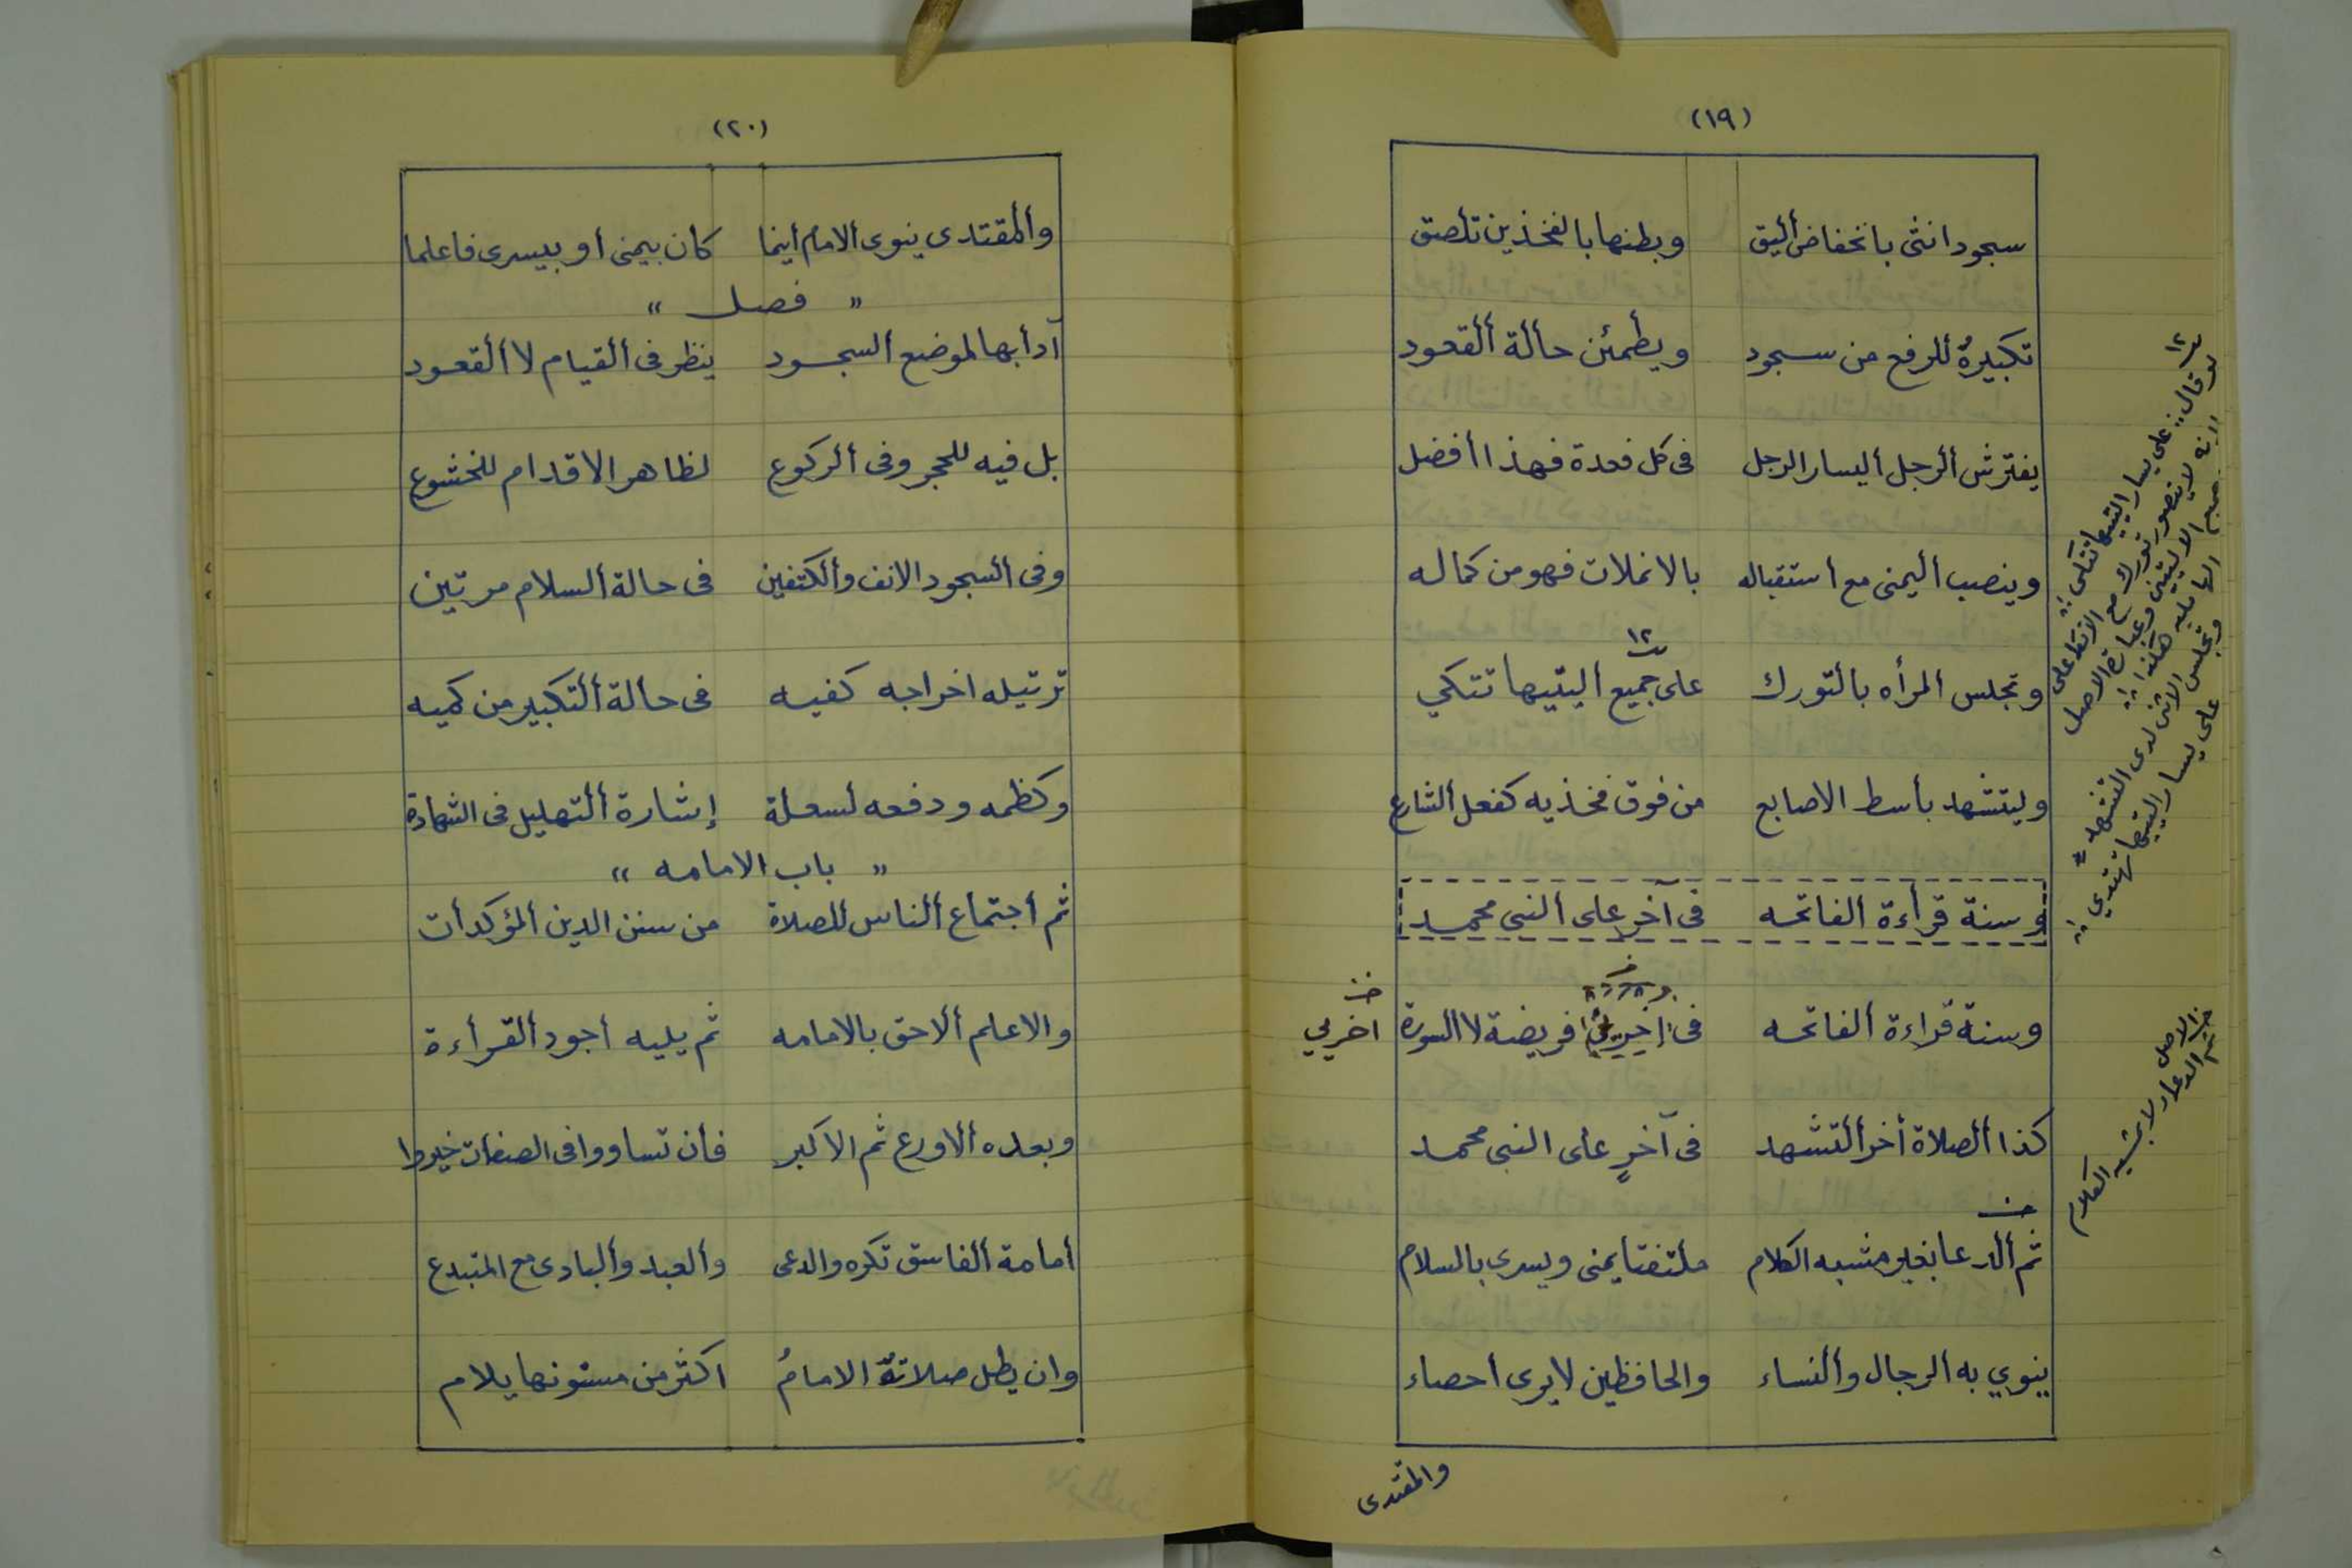 (١٩)
سجود انثى بانخفاض أليق وبطنها بالفخذين تلصق
تكبيرةٌ للرفع من سجود ويطمئن حالة ألقعود
يفترش ألرجل أليسار الرجل فى كل قعدة فهذا أفضل
وينصب أليمنى مع استقباله بالانملات فهو من كماله
وتجلس المرأه بالتورك على جميع أليتيها تتكي
١٢
وليتشهد باسط الاصابع من فوق فخذيه كفعل ألشارع
وسنة قرأءة ألفاتحه فى آخر على ألنبى محمد
وسنة قراءة ألفاتحه فى اخريي فريضة لا السورة
اخريي
كذا ألصلاة أخر ألتشهد فى آخرٍ على النبى محمد
ثم ألدعا بغير مشبه الكلام ملتفتا يمنى ويسرى بالسلام
ينوي به ألرجال وألنساء والحافظين لا يرى أحصاء
والمقتدى
١٢
لو قال: على يسار أليتيها تتكى
لانه لايتصور تورك مع الاتكا على
جميع الاليتين وعبارة الاصل
هكذا
وتجلس الانثى لدى التشهد
على يسار أليتيها تهتدي
الاصل
ثم الدعاء لا بشبه الكلام
(٢٠)
وألمقتدى ينوى ألامام أينما كان بيمنى أو بيسرى فاعلما
" فصل "
آدأبها لموضع ألسجود ينظر فى ألقيام لا ألقعود
بل فيه للحجر وفى ألركوع لظاهر الاقدام للخشوع
وفى ألسجود الانف وألكتفين فى حالة ألسلام مرتين
ترتيله اخراجه كفيه فى حالة ألتكبير من كميه
وكظمه ودفعه لسعلة إشارة ألتهليل فى الشهادة
" باب الامامه "
ثم أجتماع ألناس للصلاة من سنن الدين ألمؤكدأت
والاعلم ألاحق بالامامه ثم يليه أجود ألقرأءة
وبعده ألاورع ثم الاكبر فان تساووا فى الصفات خيروا
أمامة ألفاسق تكره والدعى وألعبد وألبادى مع المتبدع
وان يطل صلاتهُ الامامُ اكثر من مسنونها يلام